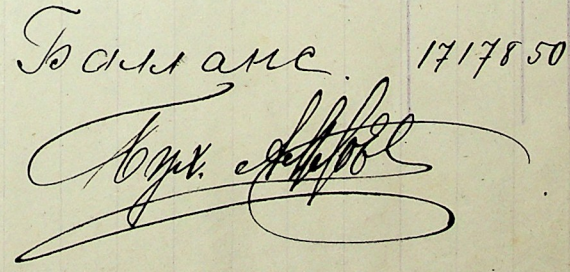 Балланс. 17178 50
Бух.